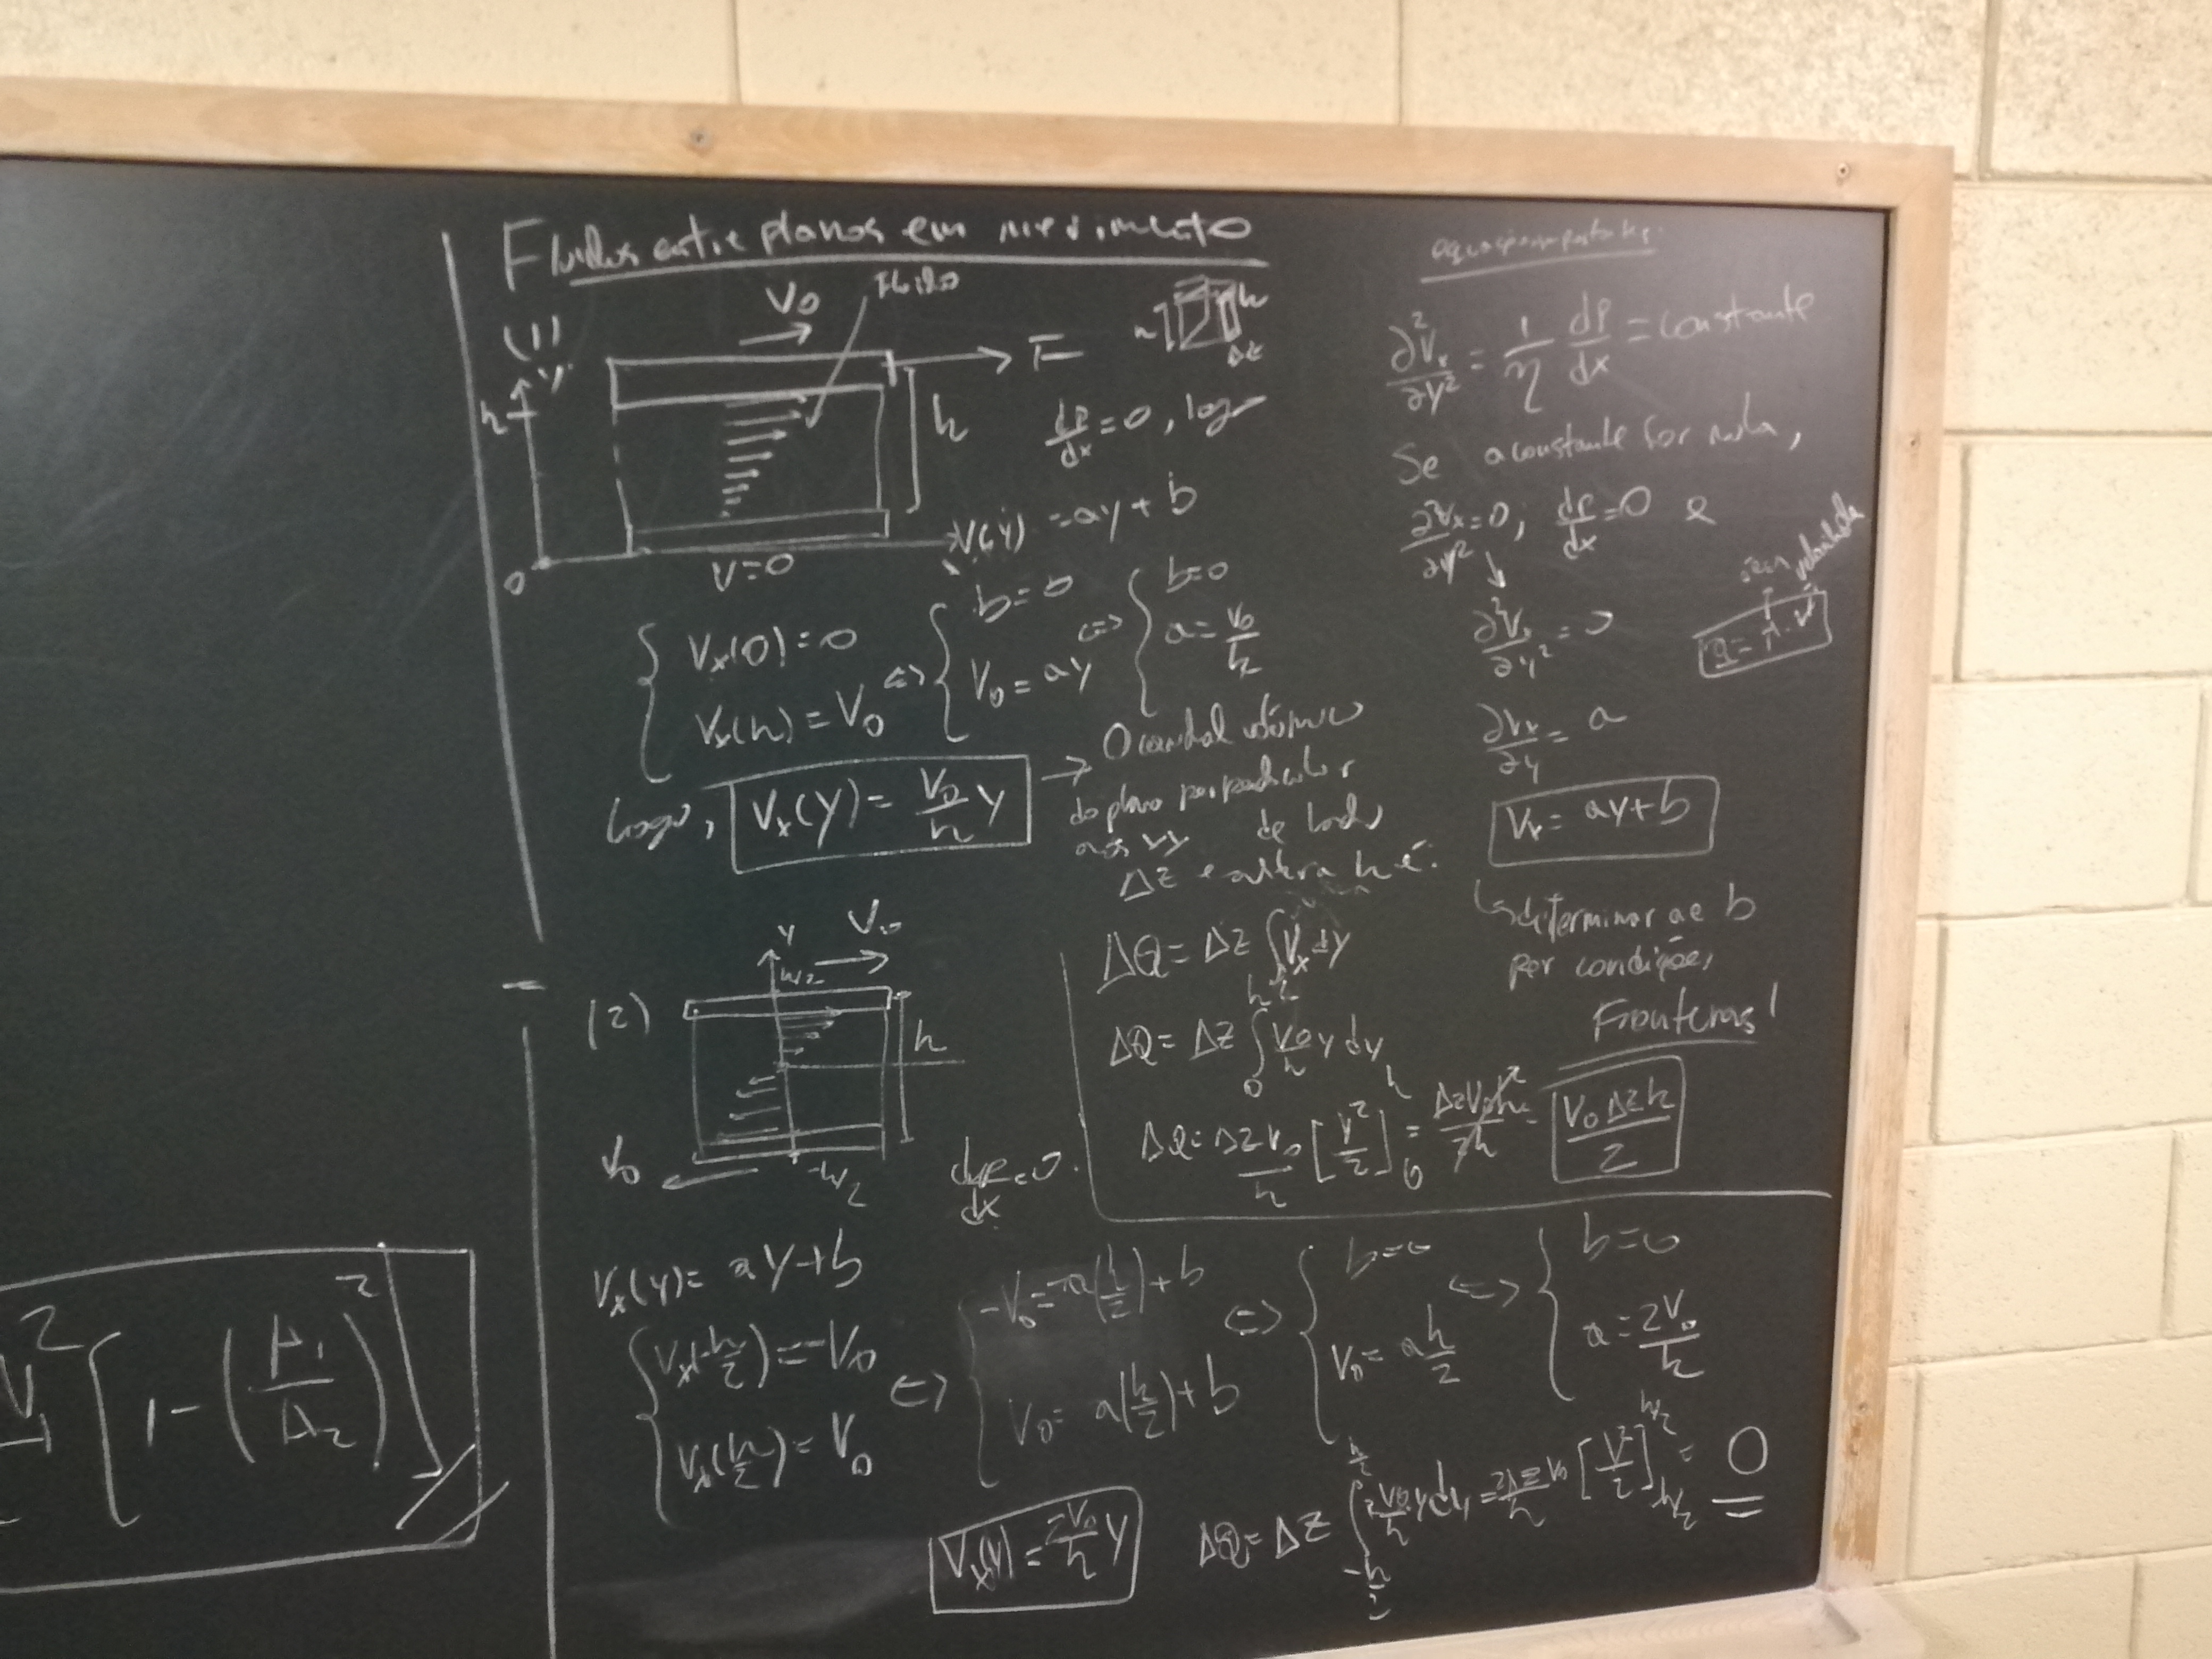 Fluidos entre planos em movimento
(1)
V₀
Fluido
F
y
h
h
h
h
Δz
0
V=0
dp/dx = 0, logo
V(y) = ay + b
{ Vx(0) = 0
Vx(h) = V₀
⇔ { b = 0
V₀ = ay
⇔ { b = 0
a = V₀/h
Logo, Vx(y) = V₀/h y
→ O caudal volúmico
do plano perpendicular
aos xy de lado
Δz e altura h é:
ΔQ = Δz ∫ Vx dy
ΔQ = Δz ∫₀ʰ V₀/h y dy
ΔQ = Δz V₀/h [y²/2]₀ʰ = Δz V₀ h²/2h = V₀ Δz h/2
∂²Vx/∂y² = 1/η dp/dx = constante
Se a constante for nula,
∂²Vx/∂y² = 0; dp/dx = 0 e
∂²Vx/∂y² = 0
velocidade
Q = A · V
∂Vx/∂y = a
Vx = ay + b
↳ determinar a e b
por condições
Fronteiras!
(2)
y
V₀
h/2
h
V₀
-h/2
dp/dx = 0
Vx(y) = ay + b
{ Vx(-h/2) = -V₀
Vx(h/2) = V₀
⇔ { -V₀ = -a(h/2) + b
V₀ = a(h/2) + b
⇔ { b = 0
V₀ = a h/2
⇔ { b = 0
a = 2V₀/h
Vx(y) = 2V₀/h y
ΔQ = Δz ∫ 2V₀/h y dy = 2Δz V₀/h [y²/2] = 0
[1 - (A₁/A₂)²]